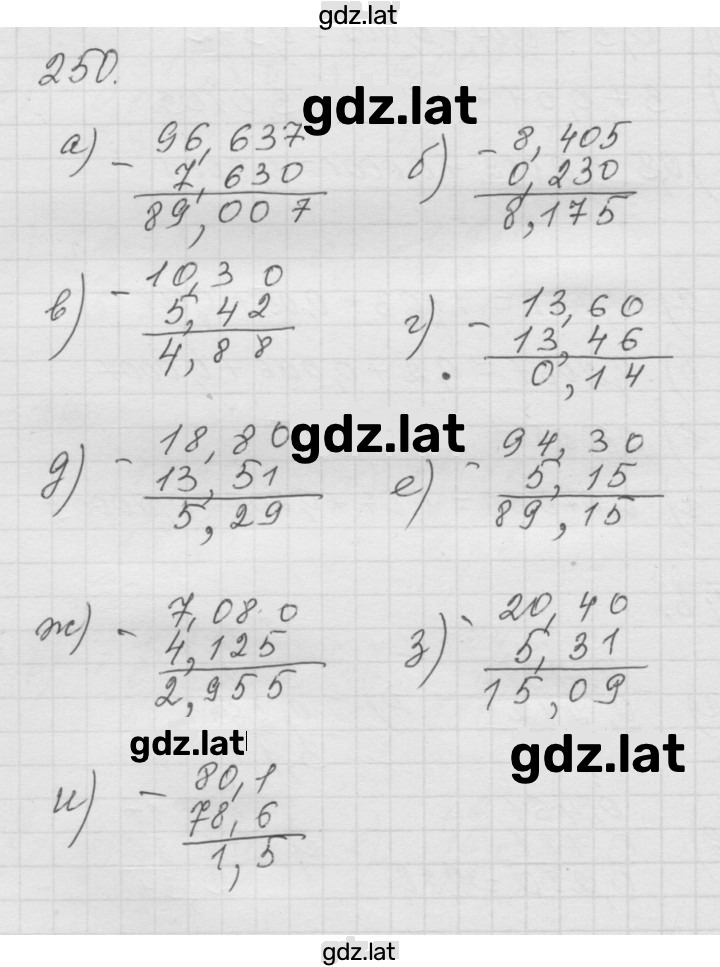 gdz.lat
250.
gdz.lat
а) - 96,637
7,630
89,007
б) - 8,405
0,230
8,175
в) - 10,30
5,42
4,88
г) - 13,60
13,46
0,14
gdz.lat
д) - 18,80
13,51
5,29
е) - 94,30
5,15
89,15
ж) - 7,080
4,125
2,955
з) - 20,40
5,31
15,09
gdz.lat
gdz.lat
и) - 80,1
78,6
1,5
gdz.lat